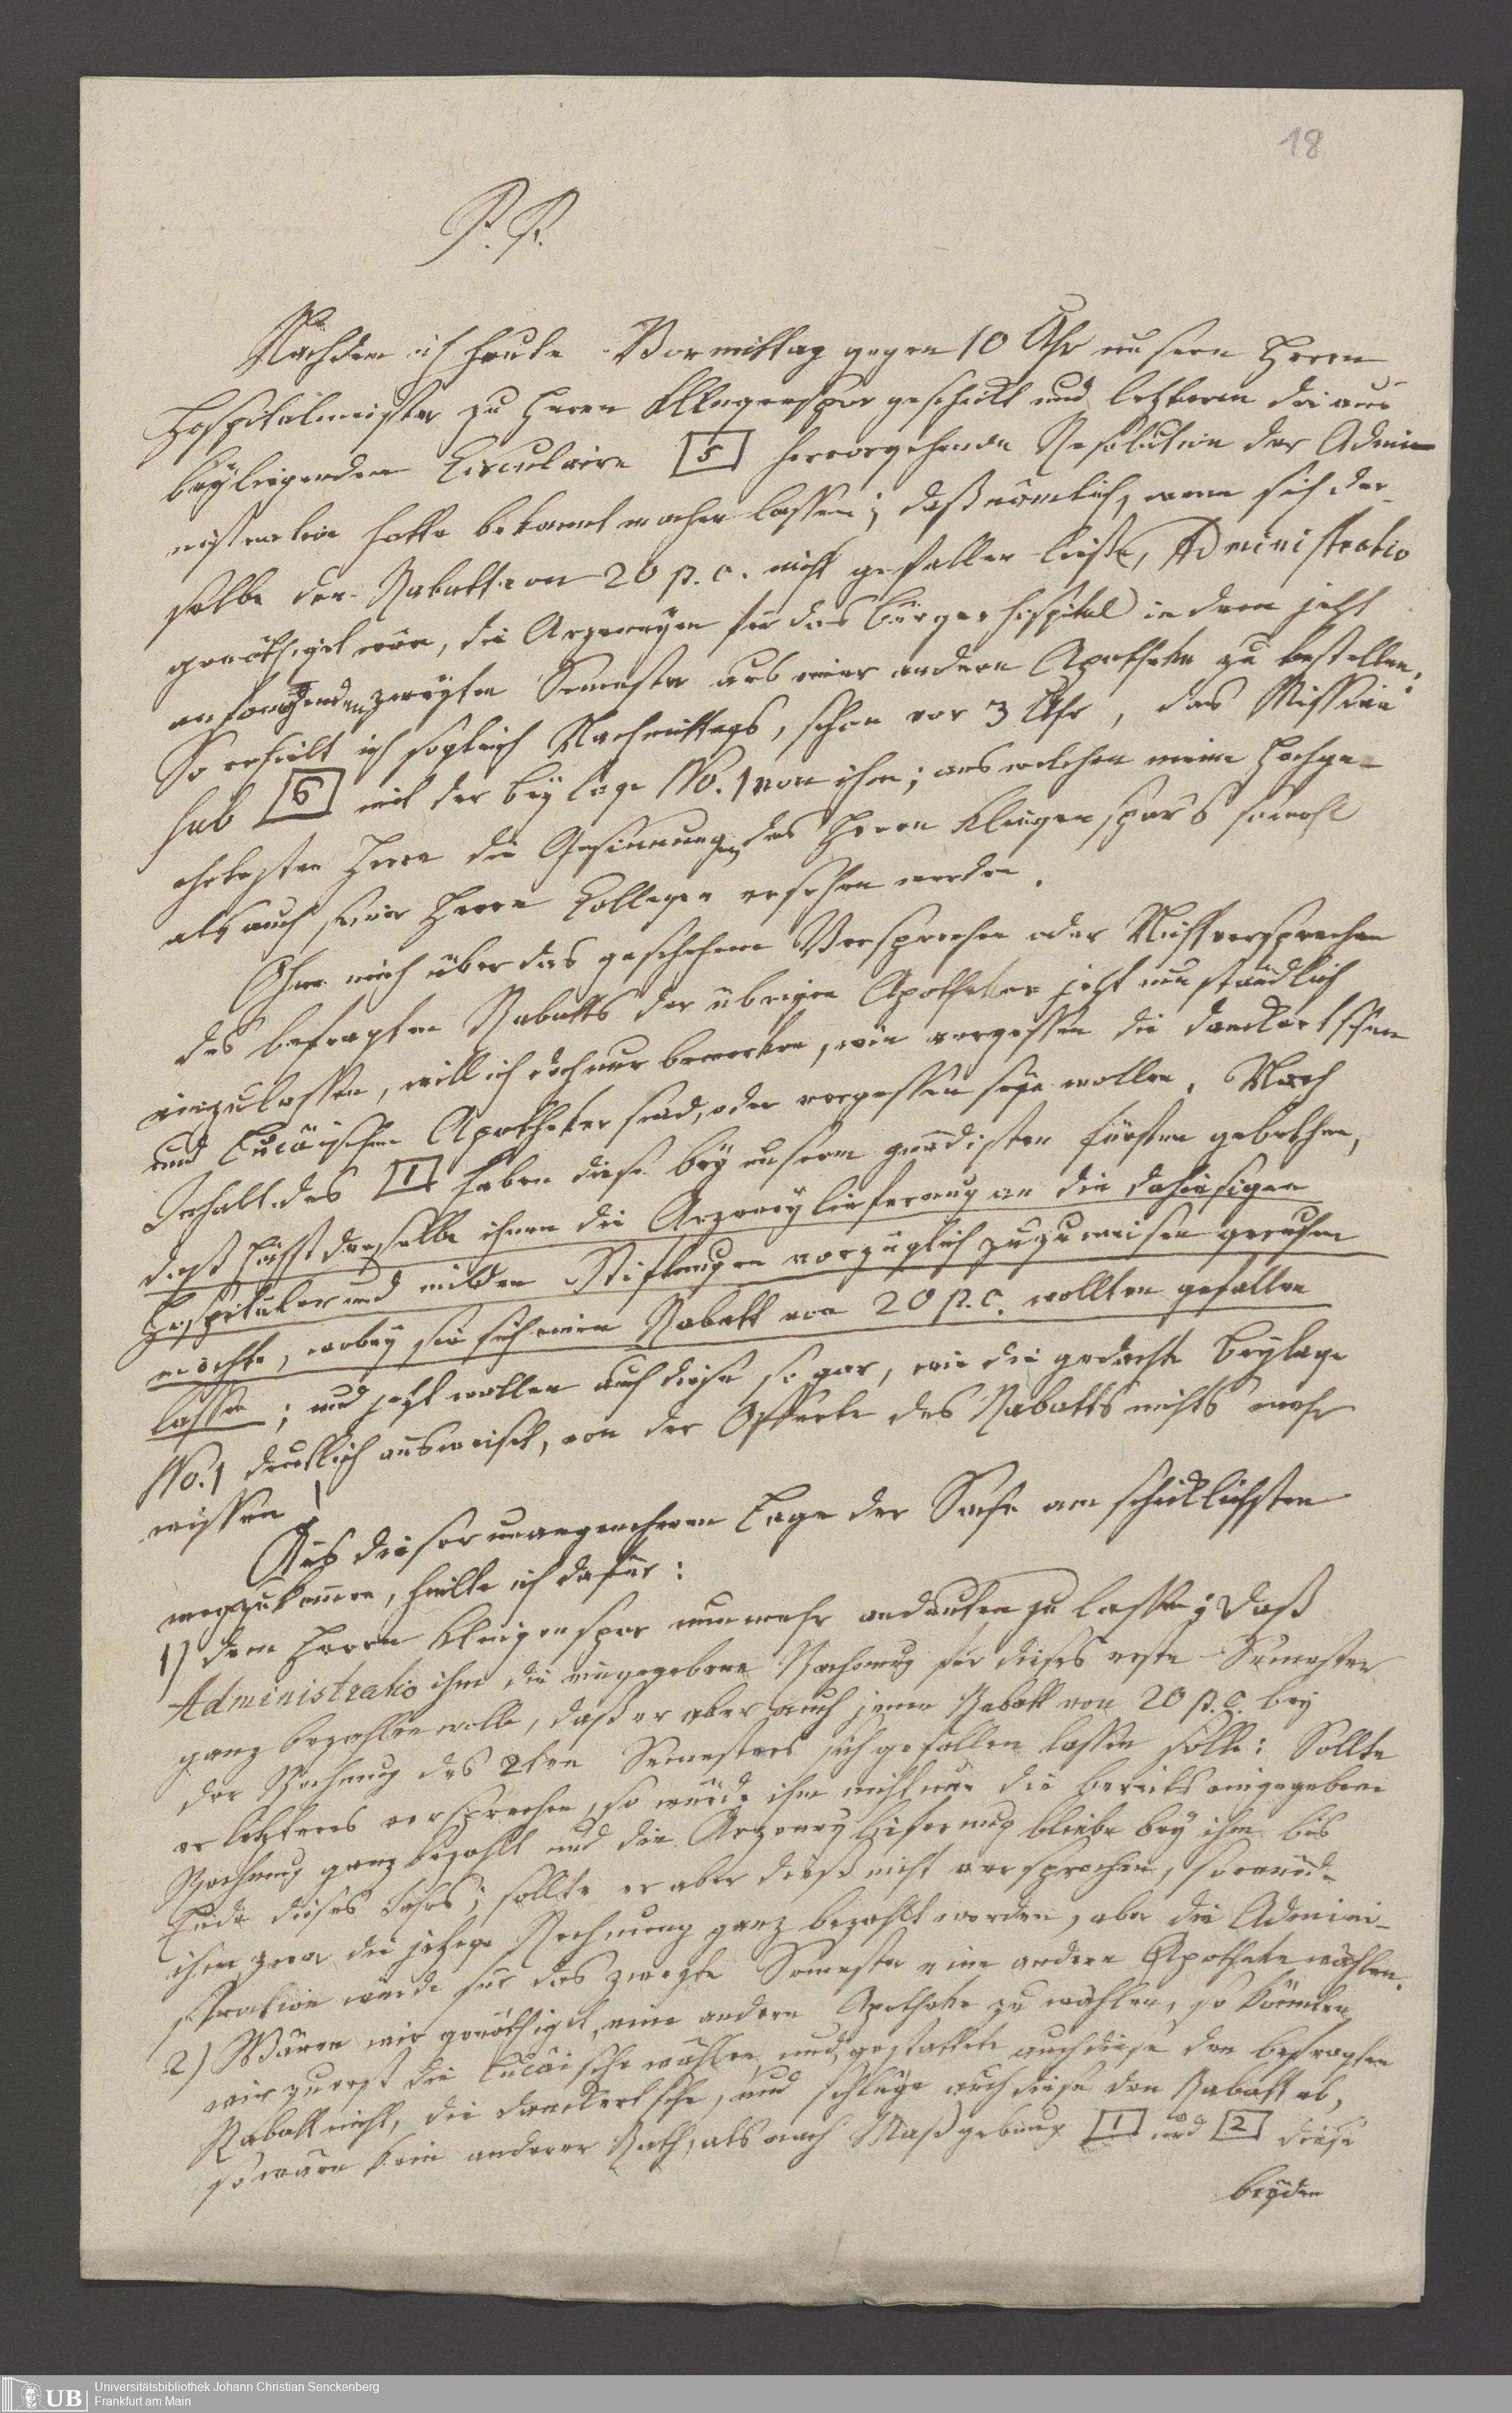 18
P. P.
Nachdem ich heute Vormittag gegen 10 Uhr unsern Herrn
Hospitalmeister zu Herrn Klingenspor geschickt und letzterm die aus
beyliegendem Circulaire 5 hervorgehende Resolution der Admi-
nistration hatte bekannt machen lassen; daß nämlich, wenn sich der-
selbe den Rabatt von 20 p. c. nicht gefallen ließe, Administratio
genöthigt wäre, die Arzneyen für das Bürgerhospital in dem jetzt
anfangenden zweyten Semester aus einer andern Apotheke zu bestellen.
So erhielt ich sogleich Nachmittags, schon vor 3 Uhr, das Missive
sub 6 mit der Beylage No. 1 von ihm; aus welchen meine Hochge-
ehrtesten Herrn die Gesinnungen des Herrn Klingenspor's sowohl
als auch seiner Herrn Collegen ersehen werden.
Ohne mich über das geschehene Versprechen oder Nichtversprechen
des befragten Rabatts der übrigen Apotheker jetzt umständlich
einzulassen, will ich doch nur bemerken, wie vergessen die Danckertschen
und Lucäischen Apotheker sind, oder vergessen seyn wollen. Nach
Inhalt des 1 haben diese bey unserm gnädigsten Fürsten gebethen,
daß Höchstderselbe ihnen die Arzneylieferung an die dahiesigen
Hospitäler und milden Stiftungen vorzüglich zuzuweisen geruhen
möchte, wobey sie sich einen Rabatt von 20 p. c. wollten gefallen
lassen; und jetzt wollen auch diese sogar, wie die gedachte Beylage
No. 1 deutlich ausweiset, von der Offerte des Rabatts nichts mehr
wissen!
Aus dieser unangenehmen Lage der Sache am schicklichsten
wegzukommen, hielte ich dafür:
1) dem Herrn Klingenspor nunmehr andeuten zu lassen; daß
Administratio ihm die eingegebene Rechnung für dieses erste Semester
ganz bezahlen wolle, daß er aber auch jenen Rabatt von 20 p. c. bey
der Rechnung des 2ten Semesters sich gefallen lassen solle: Sollte
er letzteres versprechen, so würde ihm nicht nur die bereits eingegebene
Rechnung ganz bezahlt und die Arzney Lieferung bliebe bey ihm bis
Ende dieses Jahrs; sollte er aber dieß nicht versprechen, so würde
ihm zwar die jetzige Rechnung ganz bezahlt werden, aber die Admini-
stration würde für das zweyte Semester eine andere Apotheke wählen.
2) Wären wir genöthiget, eine andere Apotheke zu wählen, so könnten
wir zuerst die Lucäische wählen, und gestattete auch diese den befragten
Rabatt nicht, die Danckertsche, und schlüge auch diese den Rabatt ab,
so wäre kein anderer Rath, als nach Maßgebung 1 und 2 diese
beyden
UB Universitätsbibliothek Johann Christian Senckenberg
Frankfurt am Main